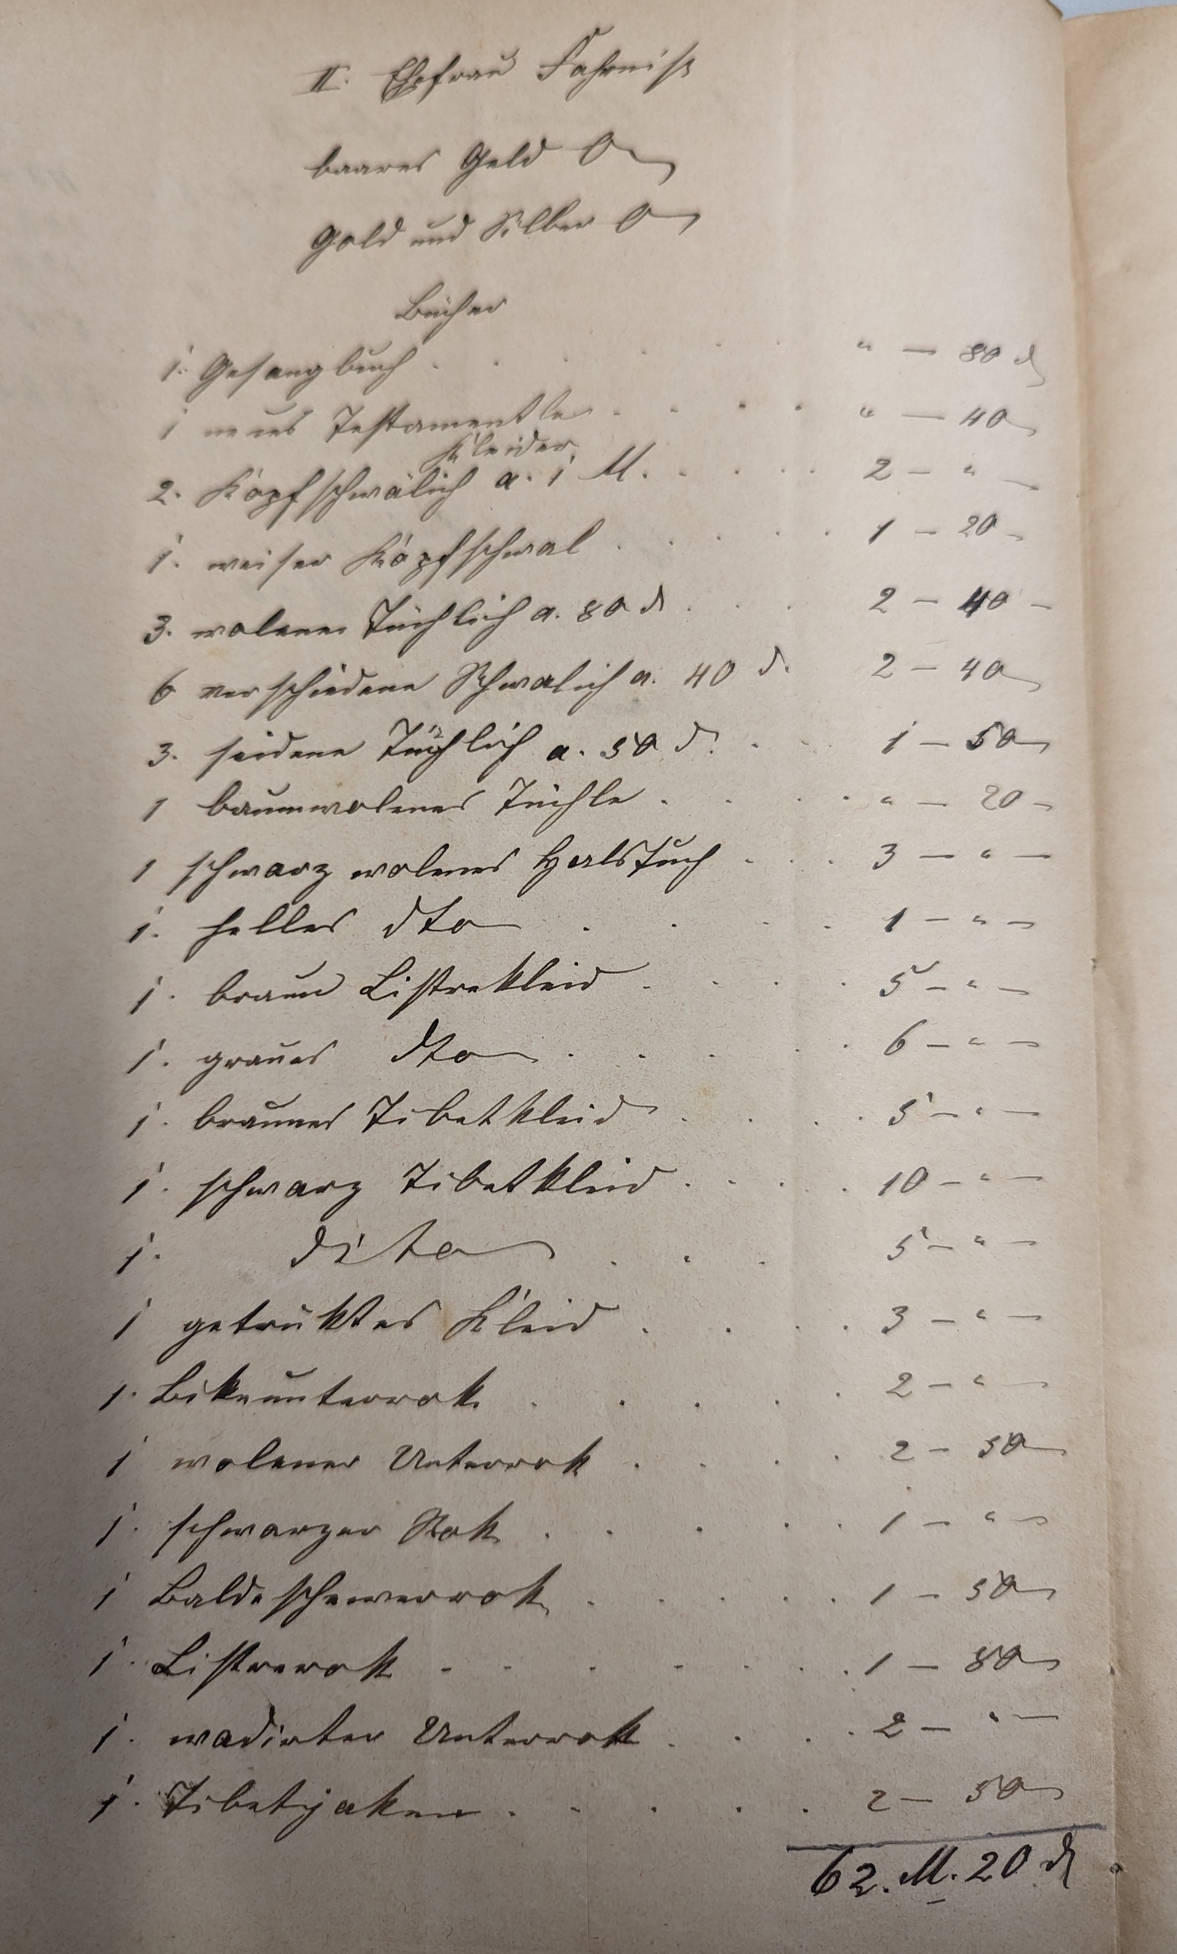 II. Ehefrau Fahrniß
baares Geld 0
Gold und Silber 0
Bücher
1. Gesangbuch . . . . . . " — 80 ₰
1 neues Testamentle . . . . " — 40
Kleider
2. Kopfschwälich a. 1 M. . . . . 2 — " —
1. weiser Kopfschwal . . . . . 1 — 20 -
3. wolene Tüchlich a. 80 ₰ . . . 2 — 40 —
6 verschiedene Schwalich a. 40 ₰. 2 — 40
3. seidene Tüchlich a. 50 ₰. . . 1 — 50
1 baumwolenes Tüchle . . . . " — 20 —
1 schwarz wolenes Halstuch . . . 3 — " —
1. helles dto . . . . 1 — " —
1. braun Listrekleid . . . . 5 — " —
1. graues dto . . . . . 6 — " —
1. braunes Tibetkleid . . . . 5 — " —
1. schwarz Tibetkleid . . . . 10 — " —
1. dito . . . 5 — " —
1 getruktes Kleid . . . . 3 — " —
1. Bikeunterrok . . . . . 2 — " —
1 wolener Unterrok . . . . 2 — 50
1. schwarzer Rok . . . . . 1 — " —
1 . . . . 1 — 50
1. Listrerok . . . . . . . 1 — 80
1. wadirter Unterrok . . . . 2 — " —
1. Tibetjaken . . . . . 2 — 50
62. M. 20 ₰